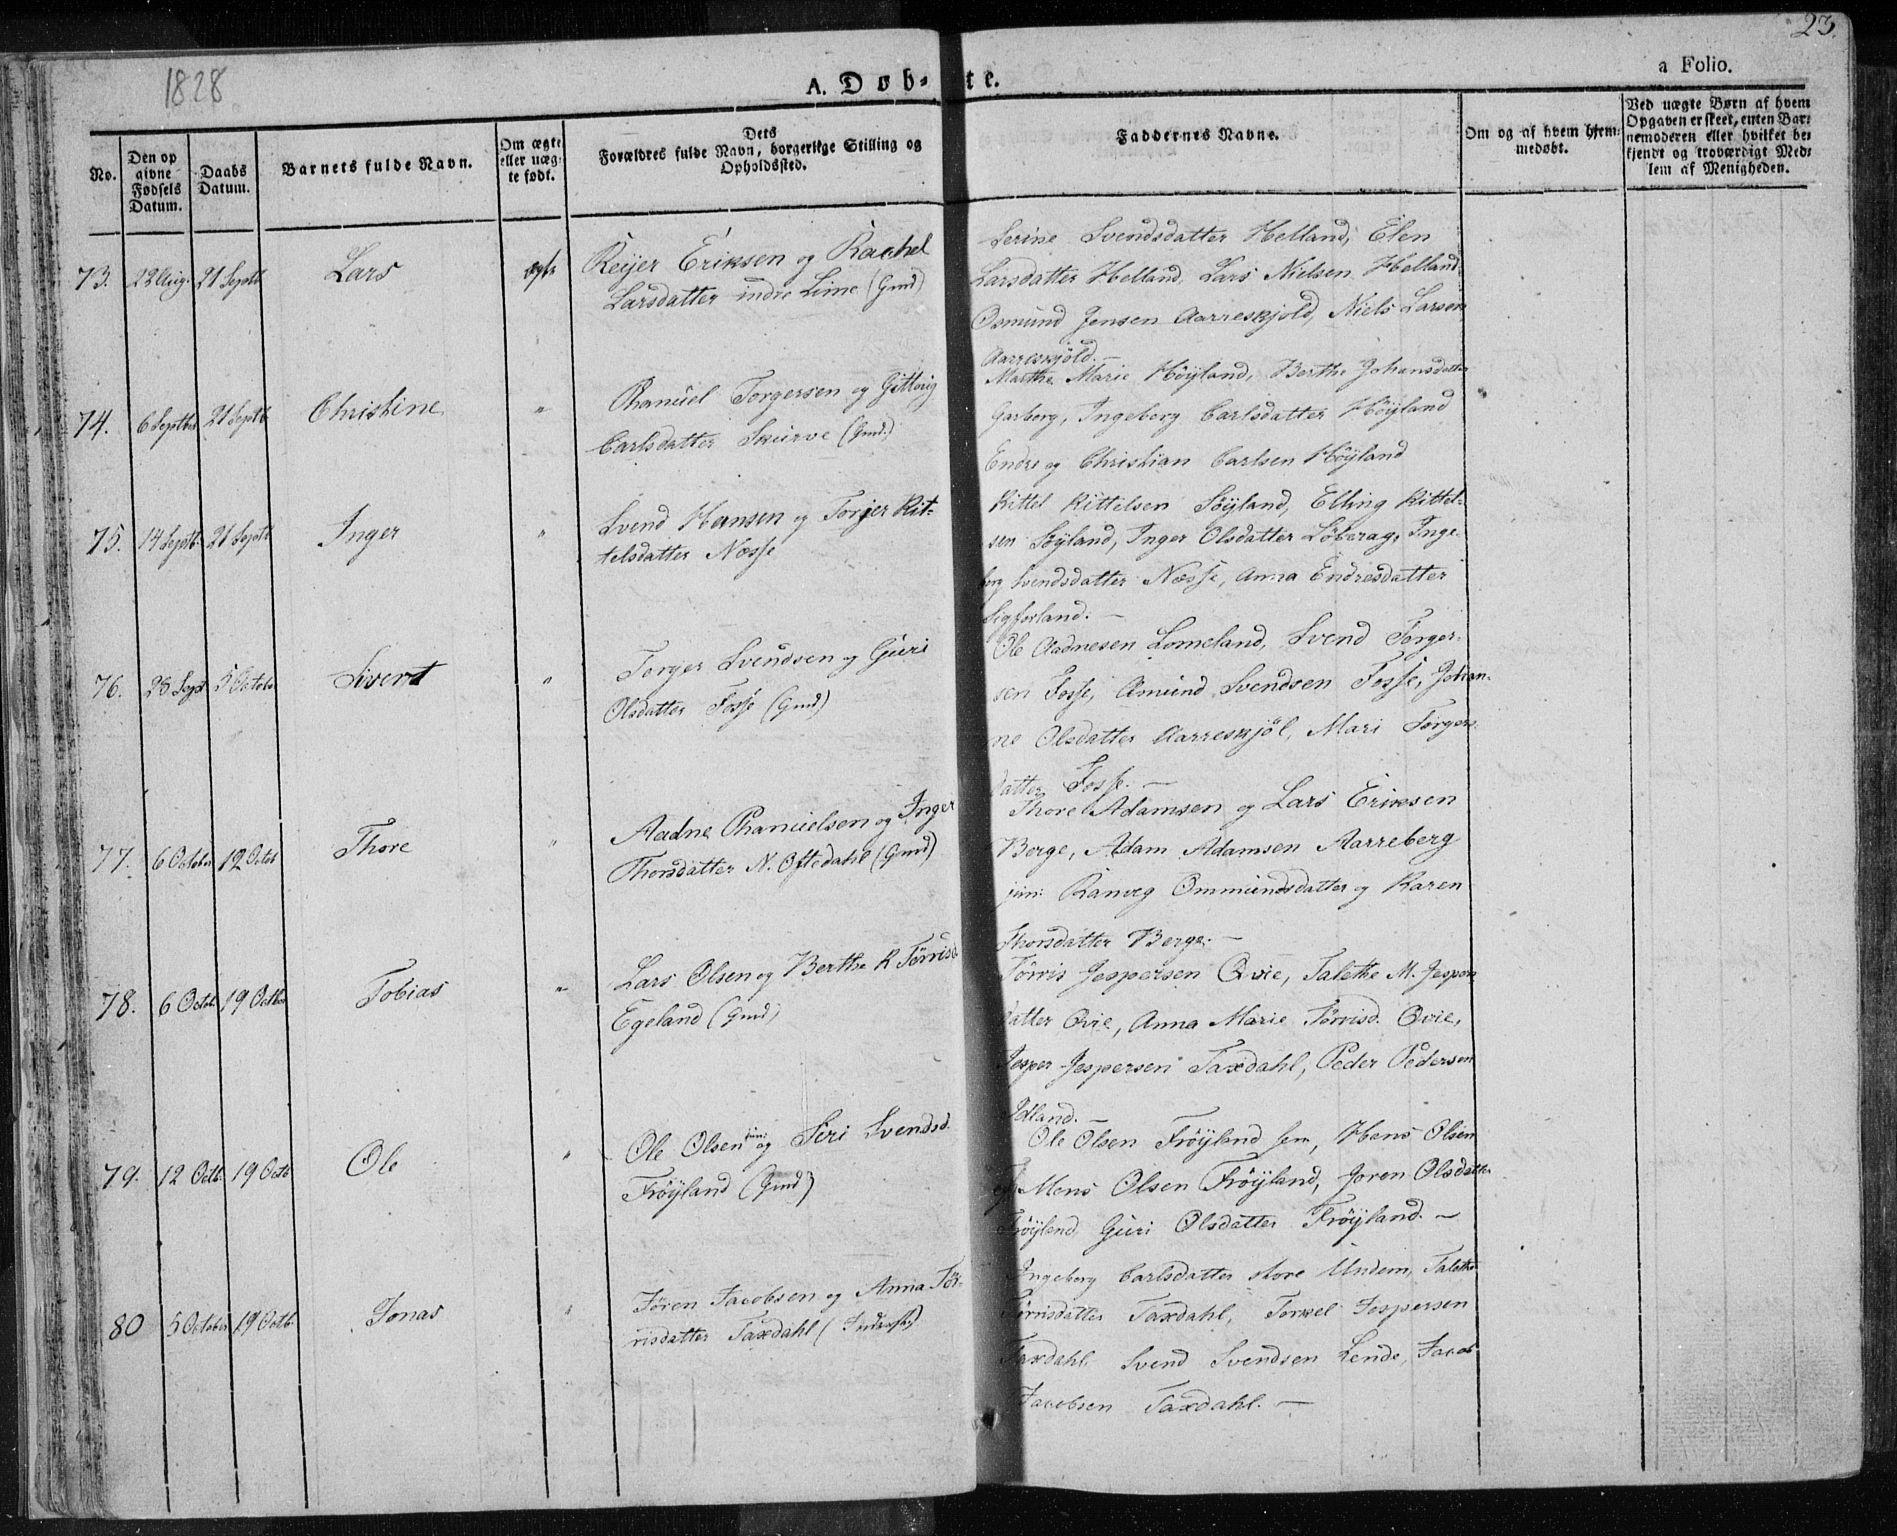 23.
1828
A. Døb-te.
a Folio.
No.
Den op
givne
Fødsels
Datum.
Daabs
Datum.
Barnets fulde Navn.
Om ægte
eller uæg-
te født.
Dets
Forældres fulde Navn, borgerlige Stilling og
Opholdssted.
Faddernes Navne.
Om og af hvem hjem-
medøbt.
Ved uægte Børn af hvem
Opgaven er skeet, enten Bar-
nemoderen eller hvilket be-
kjendt og troværdigt Med-
lem af Menigheden.
73. 22 Aug. 21 Septb Lars ægte
Reijer Eriksen og Rachel
Larsdatter indre Lime (Gmd)
Serine Svendsdatter Helland, Elen
Larsdatter Helland, Lars Nielsen Helland
Osmund Jensen Aarreskjold, Niels Larsen
Aarreskjöld. —
74. 6 Septbr 21 Septb Christine "
Thanuel Torgersen og Gittorig
Carlsdatter Skurve (Gmd.)
Marthe Marie Höyland, Berthe Johansdatter
Garberg, Ingeborg Carlsdatter Höyland
Endre og Christian Carlsen Höyland
75. 14 Septb. 21 Septb Inger "
Svend Hansen og Torjer Kit-
telsdatter Næsse
Kittel Kittelsen Söyland, Elling Kittel-
sen Söyland, Inger Olsdatter Löberag, Inge-
borg Svendsdatter Næsse, Anna Endresdatter
Sigforland. —
76. 28 Sept 5 Octobr Sivert "
Torger Svendsen og Guri
Olsdatter Fosse (Gmd)
Ole Aadnesen Lomeland, Svend Torger-
sen Fosse, Amund Svendsen Fosse, Johan-
ne Olsdatter Aarreskjöl, Mari Torgers-
datter Fosse. —
77. 6 October 12 Octob Thore "
Aadne Thanielsen og Inger
Thorsdatter N. Oftedahl (Gmd)
Thore Adamsen og Lars Eriksen
Berge, Adam Adamsen Aarreberg
jun: Ranveg Ommundsdatter og Karen
Thorsdatter Berge. —
78. 6 Octob. 19 Octbr Tobias "
Lars Olsen og Berthe K Törrisd.
Egeland (Gmd)
Törris Jespersen Qvie, Talethe M. Jespers
datter Qvie, Anna Marie Törrisd. Qvie,
Jesper Jespersen Taxdahl, Peder Pedersen
Idland. —
79. 12 Octb. 19 Octb Ole "
Ole Olsen jun: og Siri Svendsd.
Fröyland (Gmd)
Ole Olsen Fröyland sen, Hans Olsen
og Mons Olsen Fröyland, Joren Olsdatter
Fröyland, Guri Olsdatter Fröyland. —
80 5 October 19 Octb. Jonas "
Jören Jacobsen og Anna Tör-
risdatter Taxdahl (
Ingeborg Carlsdatter store Undem, Talethe
Törrisdatter Taxdahl, Torkel Jespersen
Taxdahl Svend Svendsen Lende, Jacob
Jacobsen Taxdahl. —